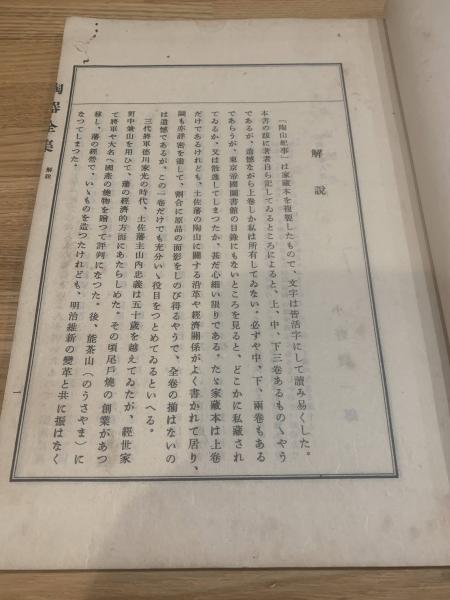 陶器全集 解說
解說
「陶山紀事」は家藏本を複製したもので、文字は皆活字にして讀み易くした。
本書の跋に著者自ら記してゐるところによると、上、中、下三卷あるものゝやう
であるが、遺憾ながら上卷しか私は所有してゐない。必ずや中、下、兩卷もある
であらうが、東京帝國圖書館の目錄にもないところを見ると、どこかに私藏され
てゐるか、又は散逸してしまつたか、甚だ心細い限りである。たゞ家藏本は上卷
だけであるけれども、土佐藩の陶山に關する沿革や經濟關係がよく書かれて居り、
圖も亦詳密を盡して、割合に原品の面影をしのび得るやうで、全卷の揃はないの
は遺憾であるが、この一卷だけでも充分いゝ役目をつとめてゐるといへる。
三代將軍德川家光の時代、土佐藩主山內忠義は五十歲を越えてゐたが、經世家
野中兼山を用ひて、藩の經濟的方面にあたらしめた。その頃尾戶燒の創業があつ
て將軍や大名へ國產の燒物を贈つて評判になつた。後、能茶山(のうさやま)に
移し、藩の經營で、いゝものを造つたけれども、明治維新の變革と共に振はなく
なつてしまつた。
一